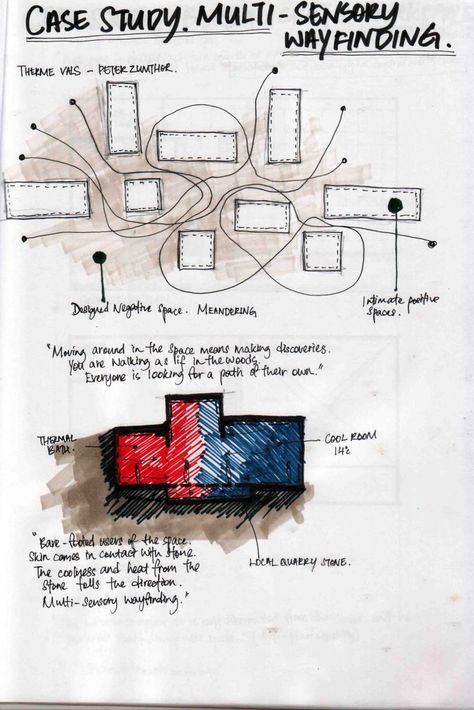 CASE STUDY. MULTI-SENSORY
WAYFINDING.
THERME VALS - PETER ZUMTHOR.
Designed Negative space. MEANDERING
Intimate positive
spaces.
"Moving around in the space means making discoveries.
You are walking as if in the woods.
Everyone is looking for a path of their own."
THERMAL
BATH.
COOL ROOM
14°c
LOCAL QUARRY STONE.
"Bare-footed users of the space.
Skin comes in contact with stone.
The coolness and heat from the
stone tells the direction.
Multi-sensory wayfinding."